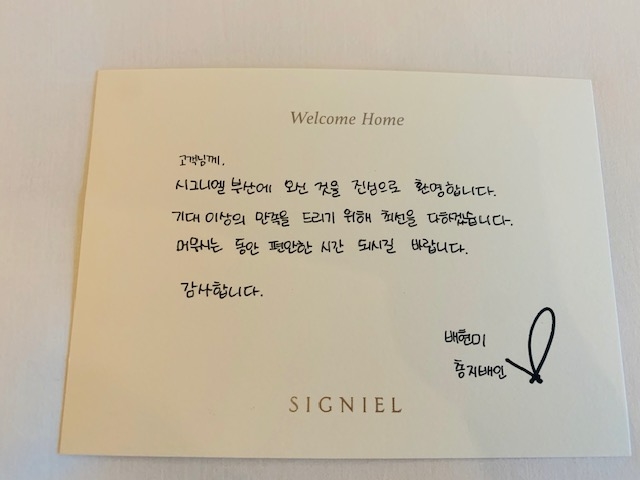 Welcome Home
고객님께.
시그니엘 부산에 오신 것을 진심으로 환영합니다.
기대 이상의 만족을 드리기 위해 최선을 다하겠습니다.
머무시는 동안 편안한 시간 되시길 바랍니다.
감사합니다.
배현미
총지배인
SIGNIEL